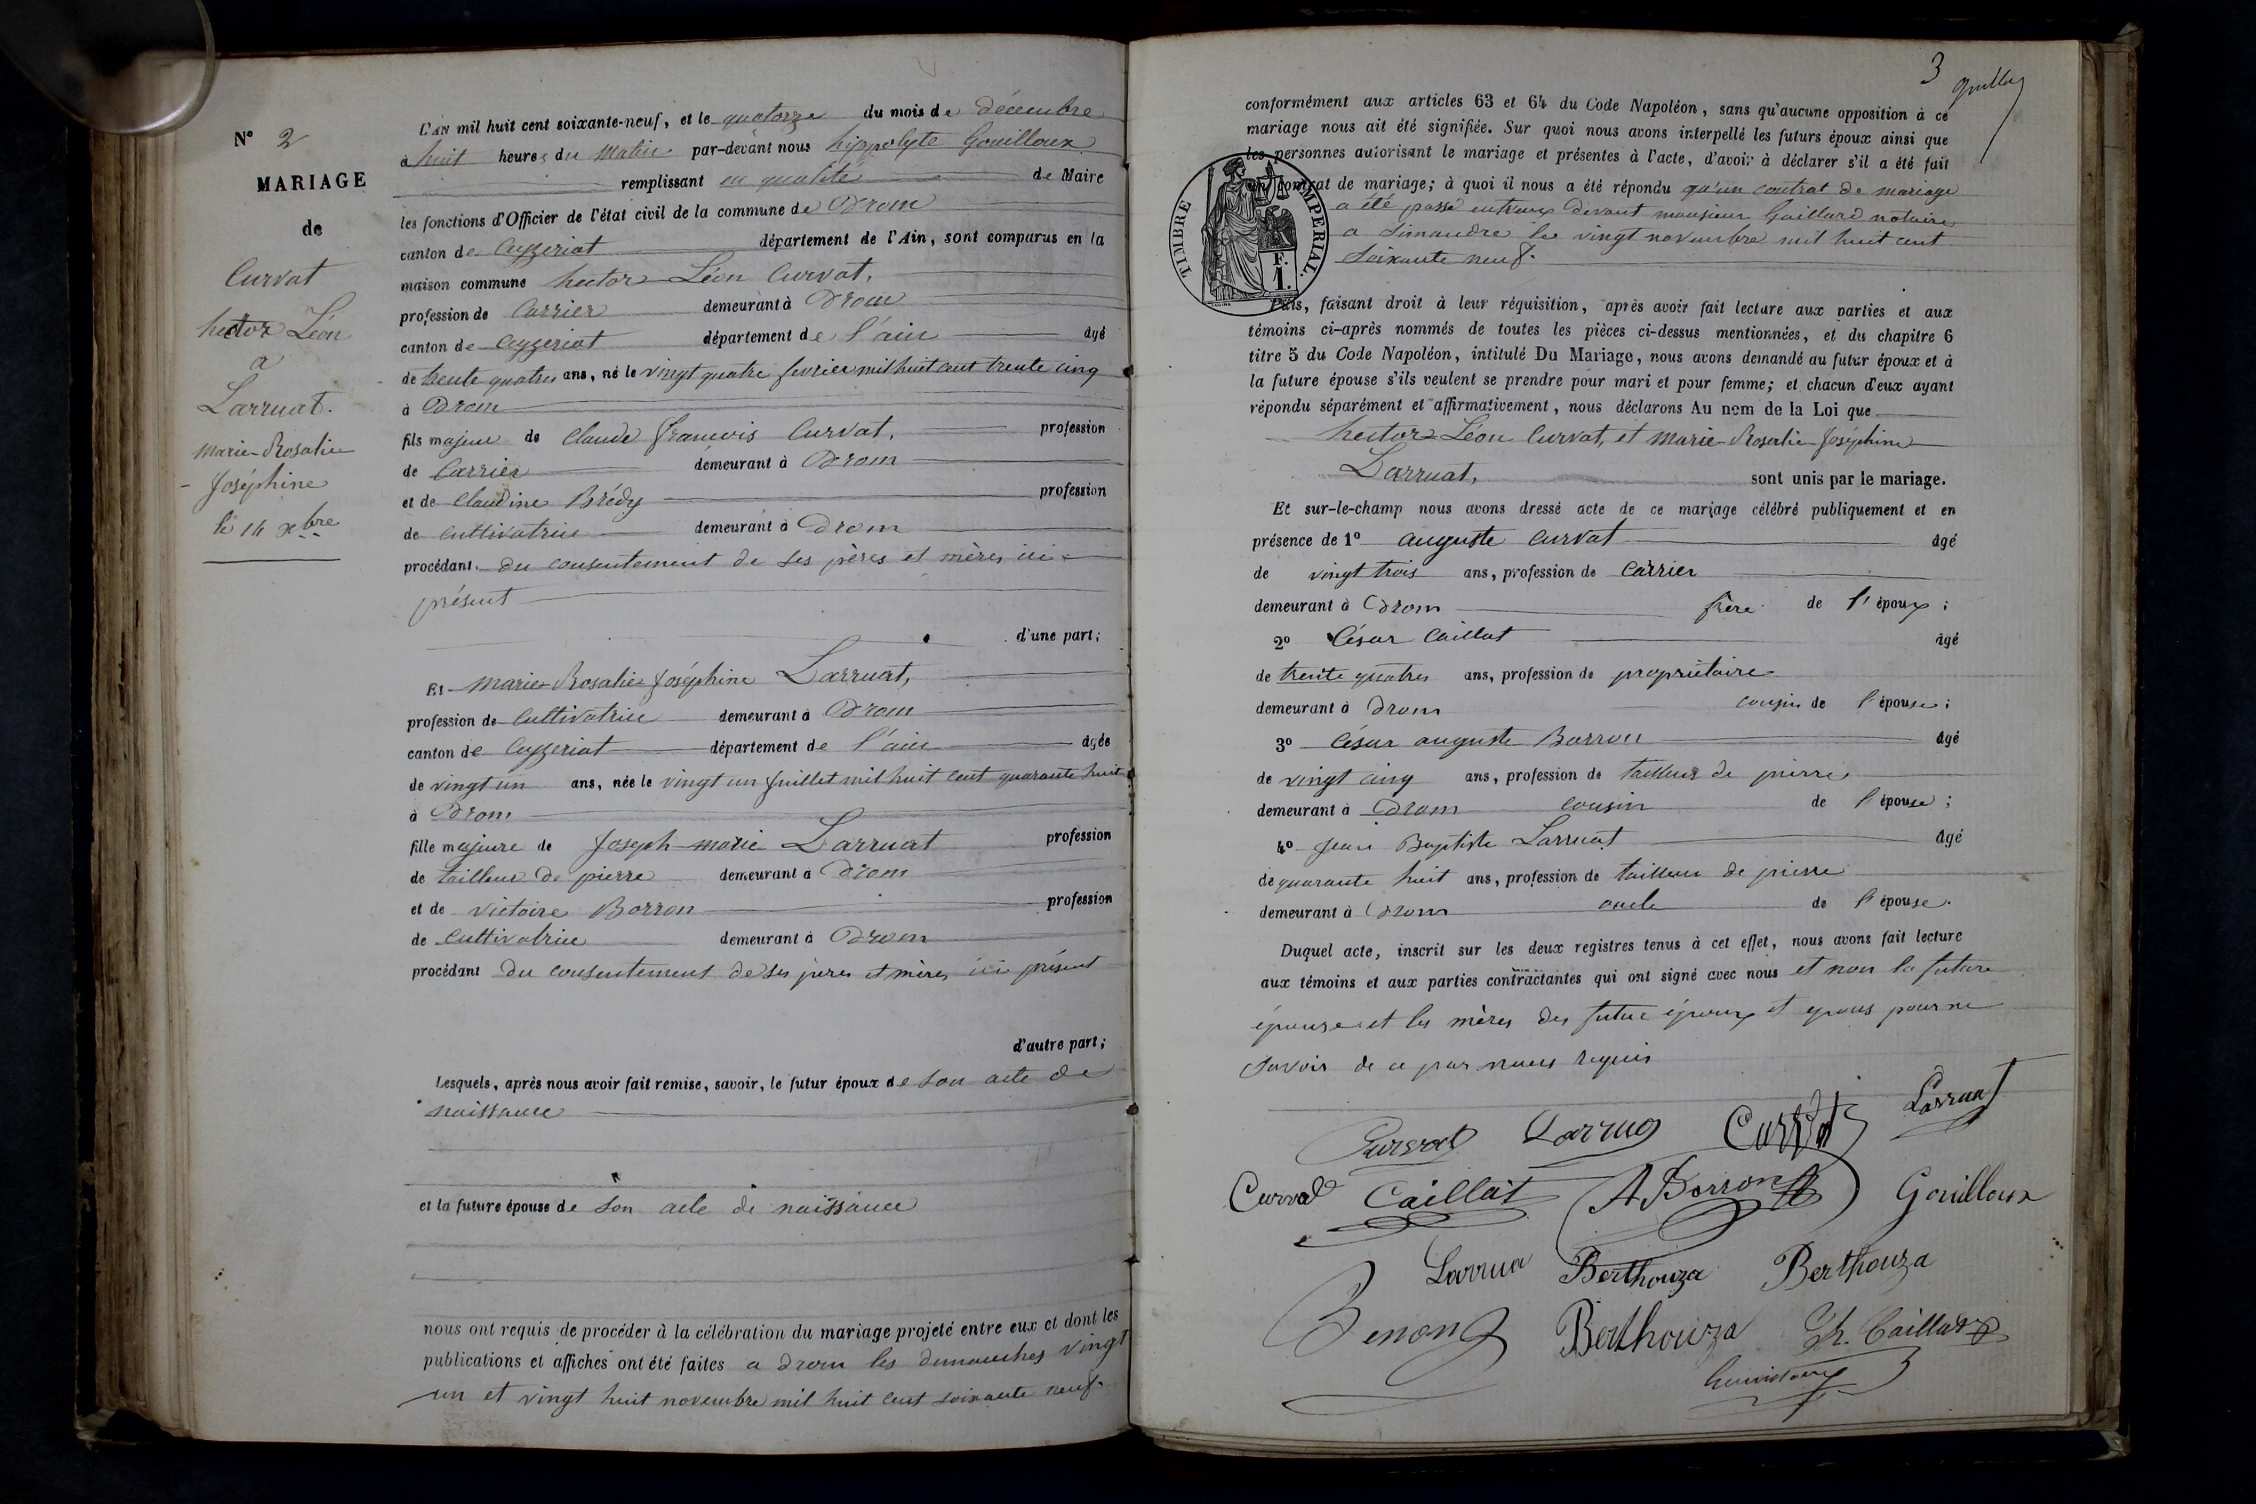 N° 2
MARIAGE
de
Curvat
hector Léon
a
Larruat.
Marie-Rosalie
Joséphine
le 14 xbre
L'AN mil huit cent soixante-neuf, et le quatorze du mois de décembre
à huit heures du Matin par-devant nous hippolyte Gouilloux
remplissant en qualité de Maire
les fonctions d'Officier de l'état civil de la commune de Drom
canton de Ceyzeriat département de l'Ain, sont comparus en la
maison commune hector Léon Curvat,
profession de Carrier demeurant à Drom
canton de Ceyzeriat département de l'ain âgé
de trente quatres ans, né le vingt quatre fevrier mil huit cent trente cinq
à Drom
fils majeur de Claude francois Curvat, profession
de Carrier demeurant à Drom
et de Claudine Brédy profession
de cultivatrice demeurant à Drom
procédant du consentement de ses pères et mères ici
présent
d'une part;
Et Marie Rosalie Joséphine Larruat,
profession de Cultivatrice demeurant à Drom
canton de Ceyzeriat département de l'ain âgée
de vingt un ans, née le vingt un Juillet mil huit cent quarante huit
à Drom
fille majeure de Joseph marie Larruat profession
de tailleur de pierre demeurant à Drom
et de Victoire Borron profession
de Cultivatrice demeurant à Drom
procédant du consentement de ses pères et mères ici présent
d'autre part;
Lesquels, après nous avoir fait remise, savoir, le futur époux de son acte de
naissance
et la future épouse de son acte de naissance
nous ont requis de procéder à la célébration du mariage projeté entre eux et dont les
publications et affiches ont été faites a drom les dimanches vingt
un et vingt huit novembre mil huit cent soixante neuf.
3
conformément aux articles 63 et 64 du Code Napoléon, sans qu'aucune opposition à ce
mariage nous ait été signifiée. Sur quoi nous avons interpellé les futurs époux ainsi que
les personnes autorisant le mariage et présentes à l'acte, d'avoir à déclarer s'il a été fait
un contrat de mariage; à quoi il nous a été répondu qu'un contrat de mariage
a été passé entreux devant monsieur Gaillard notaire
a Simandre le vingt novembre mil huit cent
soixante neuf.
TIMBRE IMPERIAL.
F.
1.
Puis, faisant droit à leur réquisition, après avoir fait lecture aux parties et aux
témoins ci-après nommés de toutes les pièces ci-dessus mentionnées, et du chapitre 6
titre 5 du Code Napoléon, intitulé Du Mariage, nous avons demandé au futur époux et à
la future épouse s'ils veulent se prendre pour mari et pour femme; et chacun d'eux ayant
répondu séparément et affirmativement, nous déclarons Au nom de la Loi que
hector Léon Curvat, et Marie Rosalie Joséphine
Larruat, sont unis par le mariage.
Et sur-le-champ nous avons dressé acte de ce mariage célébré publiquement et en
présence de 1° auguste Curvat âgé
de vingt trois ans, profession de Carrier
demeurant à Drom frère de l'époux;
2° César Caillat âgé
de trente quatres ans, profession de propriétaire
demeurant à Drom cousin de l'épouse;
3° César auguste Borron âgé
de vingt cinq ans, profession de tailleur de pierre
demeurant à Drom cousin de l'épouse;
4° Jean Baptiste Larruat âgé
de quarante huit ans, profession de tailleur de pierre
demeurant à Drom oncle de l'épouse.
Duquel acte, inscrit sur les deux registres tenus à cet effet, nous avons fait lecture
aux témoins et aux parties contractantes qui ont signé avec nous et non la future
épouse et les mères des futur époux et epous pour ne
Savoir de ce par nous requis
Curvat Larrua Curvat Larruat
Curvat Caillat A Borron Gouilloux
Larrua Berthouza Berthouza
Benon Berthouza Ch. Caillat